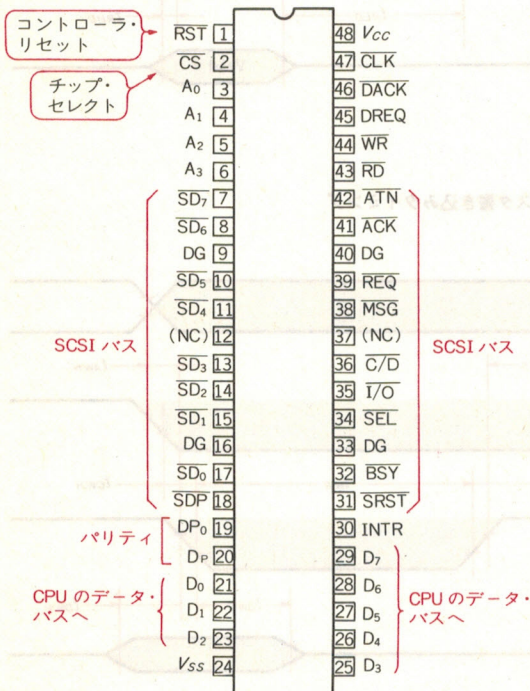 コントローラ・
リセット
チップ・
セレクト
R̅S̅T̅ 1
C̅S̅ 2
A₀ 3
A₁ 4
A₂ 5
A₃ 6
S̅D̅₇ 7
S̅D̅₆ 8
DG 9
S̅D̅₅ 10
S̅D̅₄ 11
(NC) 12
S̅D̅₃ 13
S̅D̅₂ 14
S̅D̅₁ 15
DG 16
S̅D̅₀ 17
S̅D̅P̅ 18
DP₀ 19
Dₚ 20
D₀ 21
D₁ 22
D₂ 23
Vss 24
SCSI バス
パリティ
CPU のデータ・
バスへ
48 Vcc
47 C̅L̅K̅
46 D̅A̅C̅K̅
45 DREQ
44 W̅R̅
43 R̅D̅
42 A̅T̅N̅
41 A̅C̅K̅
40 DG
39 R̅E̅Q̅
38 M̅S̅G̅
37 (NC)
36 C̅/D̅
35 I̅/O̅
34 S̅E̅L̅
33 DG
32 B̅S̅Y̅
31 S̅R̅S̅T̅
30 INTR
29 D₇
28 D₆
27 D₅
26 D₄
25 D₃
SCSI バス
CPU のデータ・
バスへ